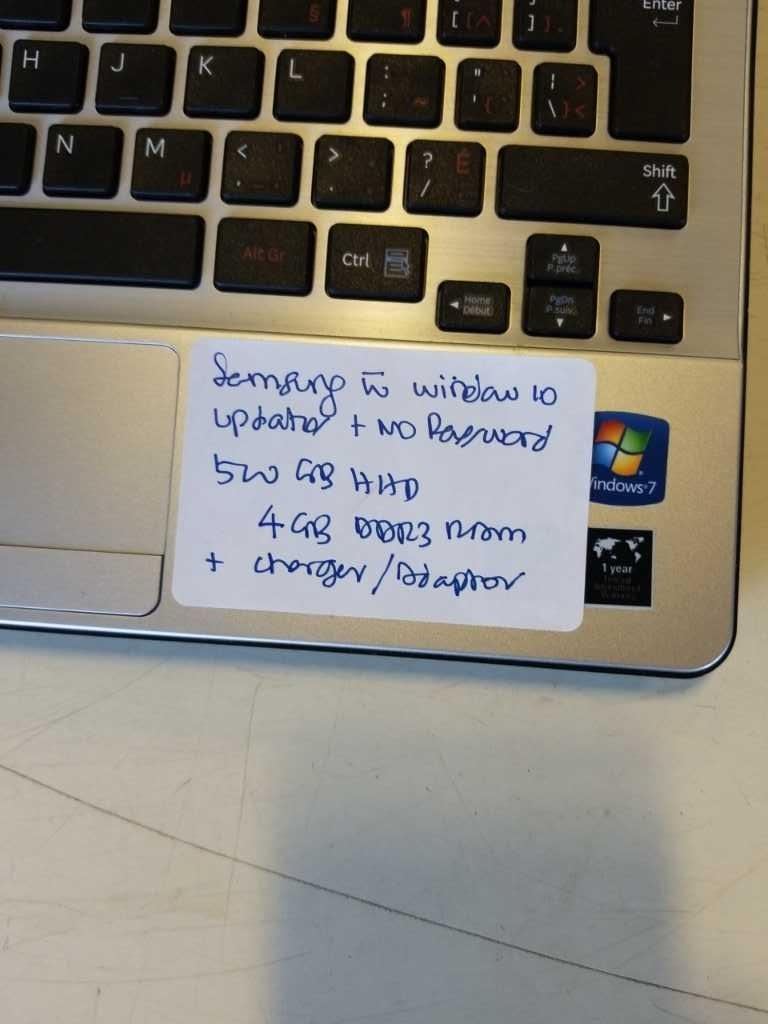 Enter
H J K L : ; ~ " ' { | \ } > <
N M µ < , > . ? / É Shift
Alt Gr Ctrl PgUp P.préc.
Home Début PgDn P.suiv. End Fin
Samsung w̄ window 10
updated + NO Password
500 GB HHD
4GB DDR3 Ram
+ charger/Adaptor
Windows 7
1 year